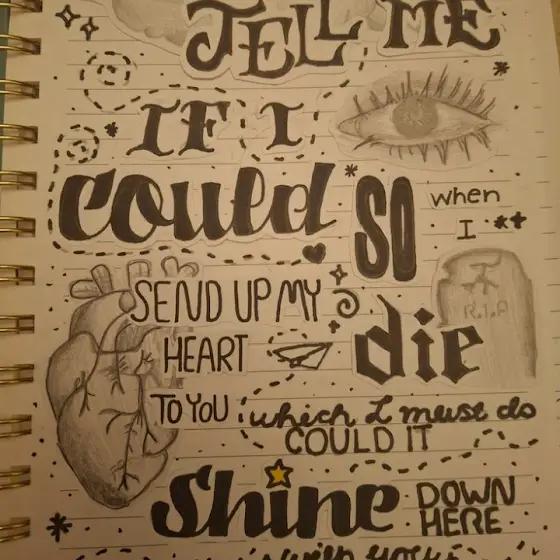 TELL ME
IF I
could so when
I
SEND UP MY
die
R.I.P
HEART
TO YOU which I must do
COULD IT
Shine DOWN
HERE
with you